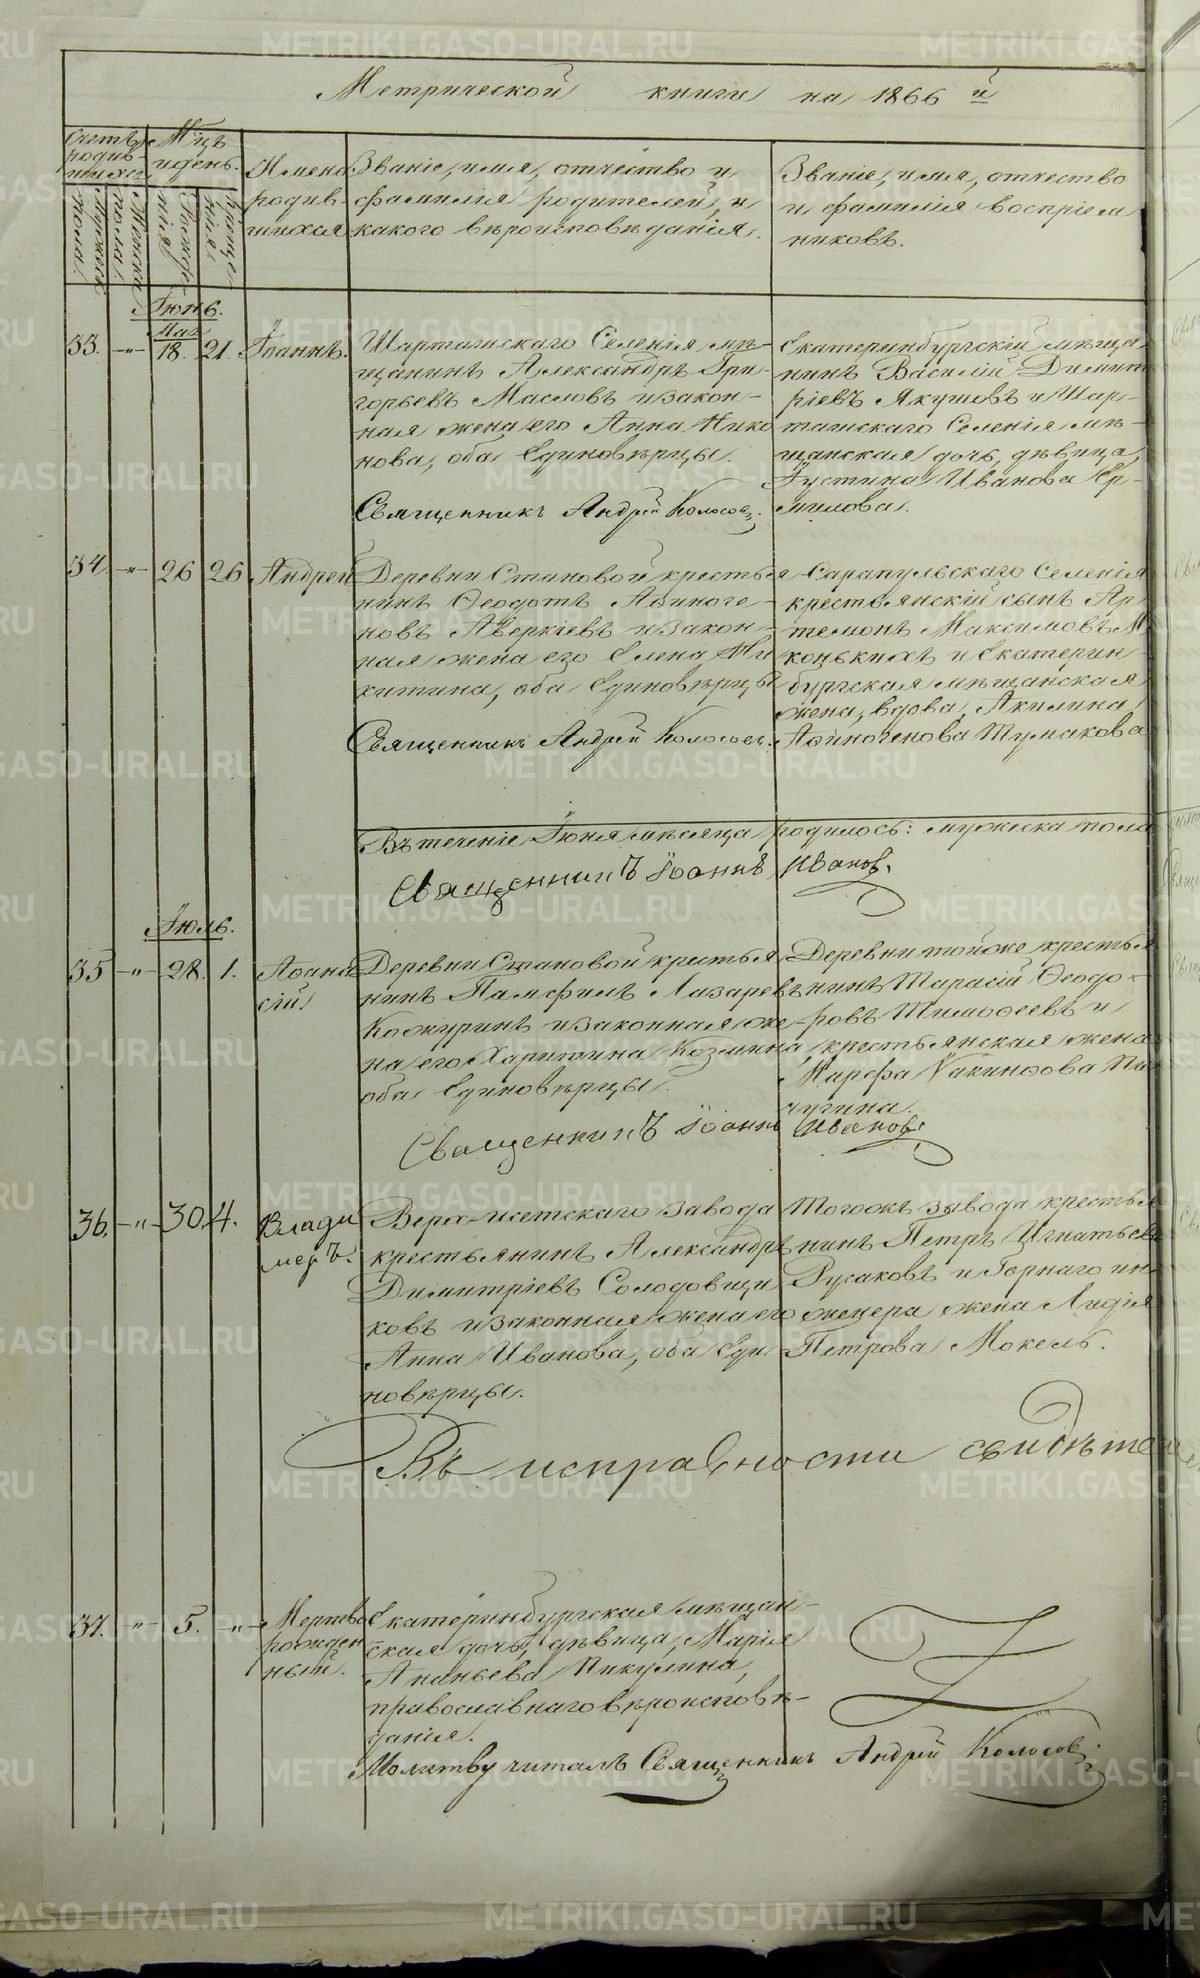 Метрической книги на 1866 й
Счетъ родив-шихся
Мѣц. и день.
Имена родив-шихся
Званіе, имя, отчество и фамилія родителей, и какого вѣроисповѣданія.
Званіе, имя, отчество и фамилія воспріем-никовъ.
Мужеска пола.
Женска пола.
Рожде-нія
Креще-нія
Іюнь.
33. -"- Мая 18. 21. Іоаннъ.
Шарташскаго Селенія мѣ-
щанинъ Александръ Гри-
горьевъ Масловъ и закон-
ная жена его Анна Нико
нова, оба Единовѣрцы.
Священникъ Андрей Колосов.
Екатеринбургскій мѣща
нинъ Василій Димит
ріевъ Якушовъ и Шар-
ташскаго Селенія мѣ-
щанская дочь, дѣвица,
Іустина Иванова Ер-
милова.
34 -"- 26 26 Андрей
Деревни Становой крестья
нинъ Ѳеодотъ Афиноге-
новъ Аверкіевъ и закон-
ная жена его Елена Ни
китина, оба Единовѣрцы
Священникъ Андрей Колосов.
Сарапульскаго Селенія
крестьянскій сынъ Ар
темонъ Максимовъ М
конькихъ и Екатерин-
бургская мѣщанская
жена, вдова, Акилина
Афиногенова Тумакова
Въ теченіе Іюня мѣсяца родилось: мужеска пола
Священникъ Іоаннъ Иванов.
Іюль.
35 -"- 28. 1. Афана
сій
Деревни Становой крестья
нинъ Памфилъ Лазаревъ
Кожуринъ и законная же-
на его Харитина Козмина
оба Единовѣрцы.
Деревни тойже крестья
нинъ Тарасій Ѳеодо-
ровъ Тимоѳеевъ и
крестьянская жена
Марфа Иакинфова Пи
чугина.
Священникъ Іоаннъ Иванов.
36. -"- 30. 4. Влади
меръ.
Верх-Исетскаго завода
крестьянинъ Александръ
Димитріевъ Солодовщи
ковъ и законная жена его
Анна Иванова, оба Еди
новѣрцы.
Тогожъ завода крестья
нинъ Петръ Игнатьев
Русаковъ и Горнаго ин-
женера жена Лидія
Петрова Мокель.
Въ исправности свидѣте
37. -"- 5. -"- Мертво
рожден
ный.
Екатеринбургская мѣщан-
ская дочь, дѣвица, Марія
Ананьева Пикулина,
православнаго вѣроисповѣ-
данія.
Молитву читалъ Священникъ Андрей Колосов.
METRIKI.GASO-URAL.RU